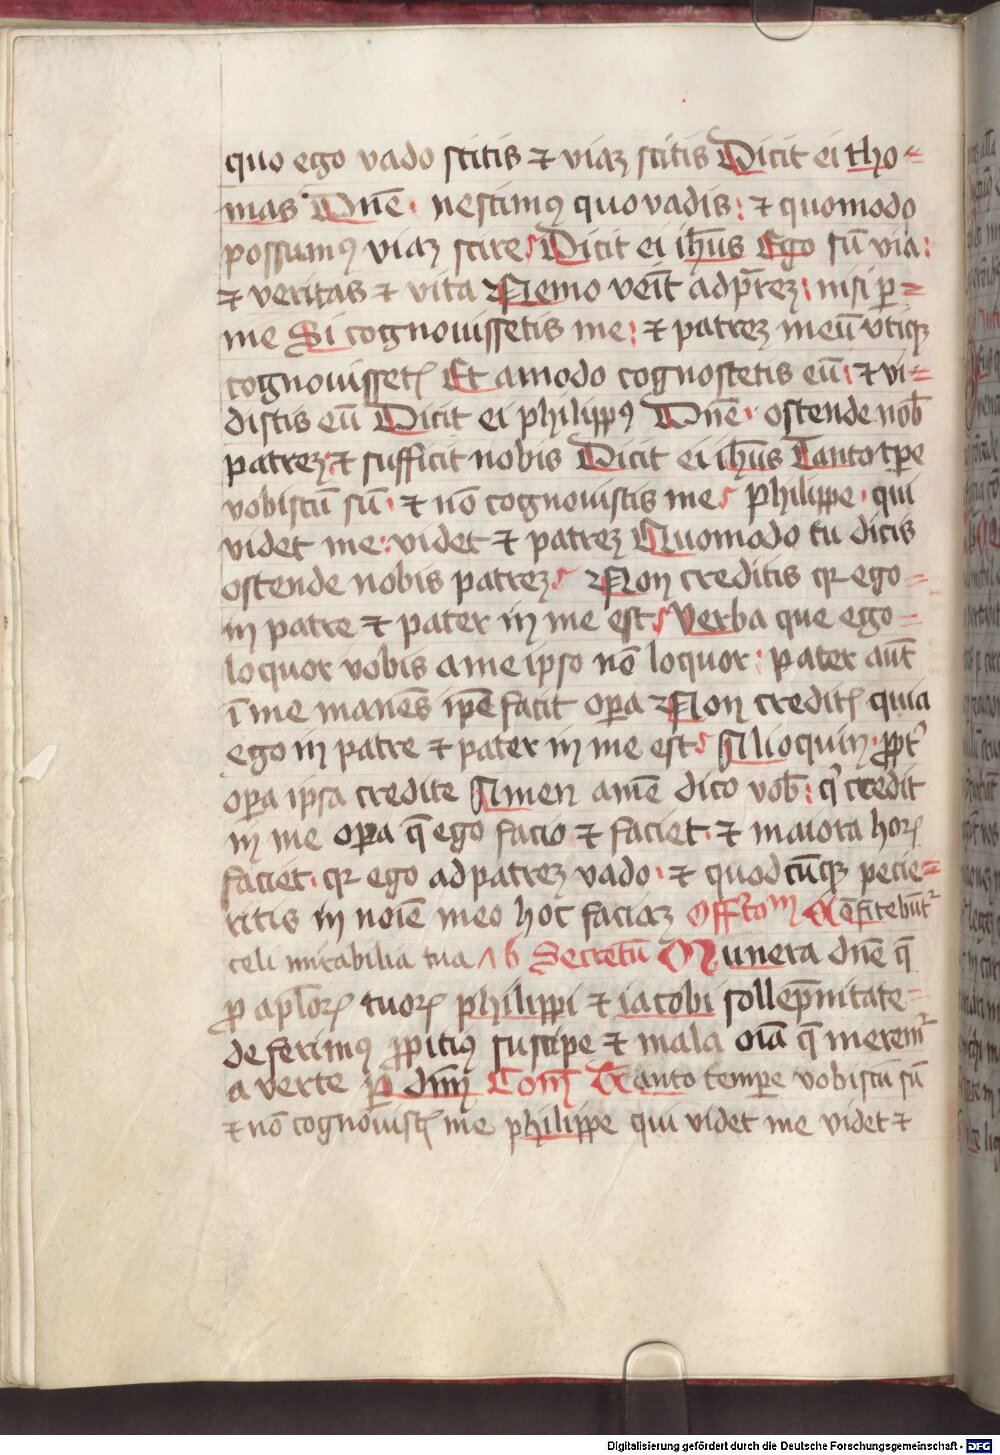 quo ego vado scitis ⁊ viaʒ scitis Dicit ei tho⸗
mas Dn̄e · nescimꝰ quo vadis : ⁊ quomodo
possumꝰ viaʒ scire Dicit ei ih̄us Ego sū via :
⁊ veritas ⁊ vita Nemo veīt ad pr̄eʒ : nisi ꝑ⸗
me Si cognouissetis me : ⁊ patreʒ meū vtiqꝫ
cognouissetꝭ Et amodo cognoscetis eū : ⁊ vi⸗
distis eū Dicit ei philippꝰ Dn̄e · ostende nob̄
patreʒ : ⁊ sufficit nobis Dicit ei ih̄us Tanto tꝑe
vobiscū sū · ⁊ nō cognouistis me philippe · qui
videt me : videt ⁊ patreʒ Quomodo tu dicis
ostende nobis patreʒ Non creditis qꝛ ego⸗
in patre ⁊ pater in me est Verba que ego⸗
loquor vobis a me ipso nō loquor : pater aūt
ī me manēs ip̄e facit oꝑa Non creditꝭ quia
ego in patre ⁊ pater in me est Alioquin · ꝓpt᷑
oꝑa ipsa credite Amen amē dico vob̄ : qͥ credit
in me oꝑa q̄ ego facio ⁊ faciet · ⁊ maiora hoꝝ
faciet · qꝛ ego ad patreʒ vado · ⁊ quodcūqꝫ pecie⸗
ritis in noīe meo hoc faciaʒ Offr̄toᵐ Cōfitebūt᷑
celi mirabilia tua Ab Secretū Munera dn̄e q̄
ꝓ ap̄loꝝ tuoꝝ philippi ⁊ iacobi sollēpnitate⸗
deferimꝰ ꝓpitiꝰ suscipe ⁊ mala oīa q̄ meremᷣ
a verte ꝑ dn̄m Com̄ Tanto tempore vobiscū sū
⁊ nō cognouistꝭ me philippe qui videt me videt ⁊
Digitalisierung gefördert durch die Deutsche Forschungsgemeinschaft - DFG